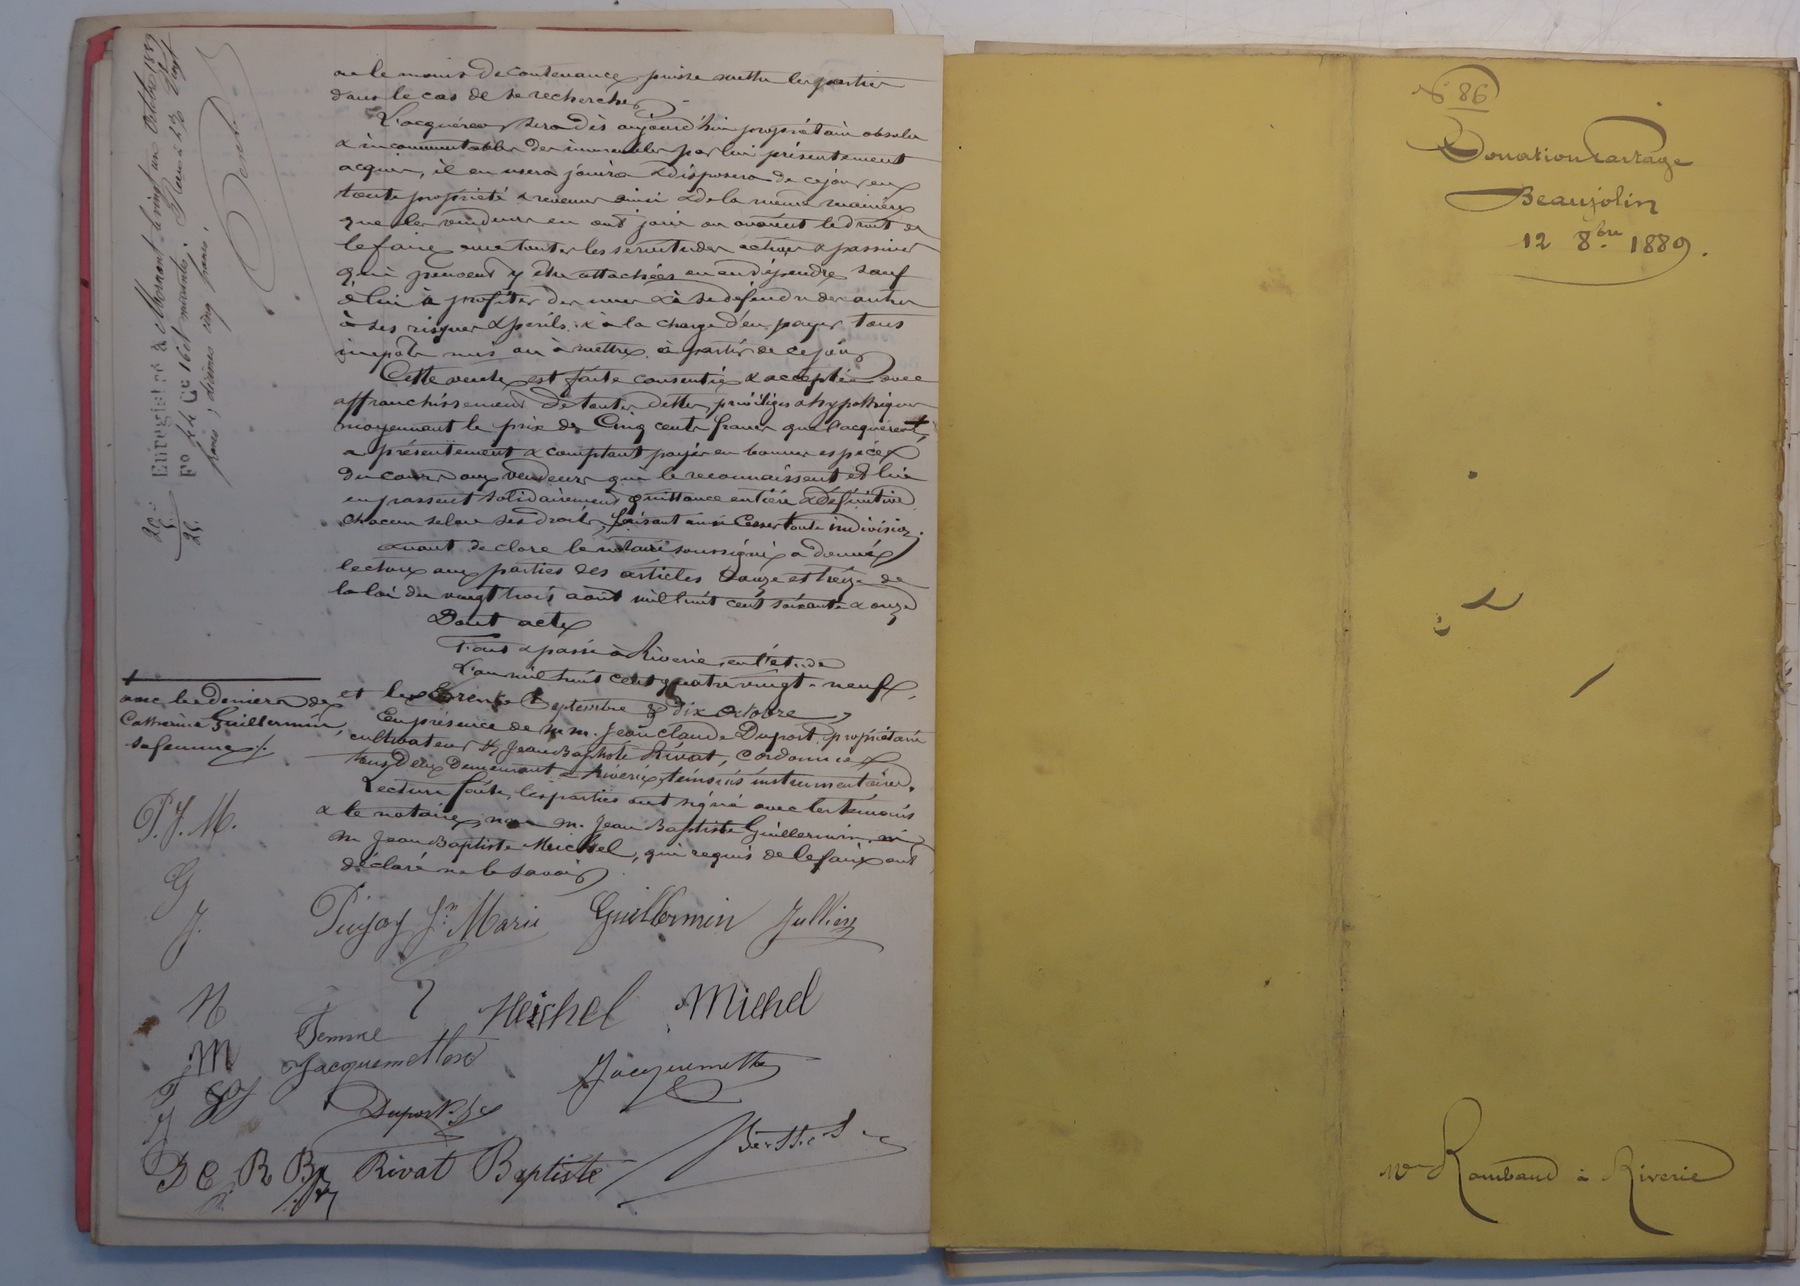 ou le moins de contenance puisse mettre les parties
dans le cas de se rechercher
L'acquéreur sera dès aujourd'hui propriétaire absolu
& incommutable des immeubles par lui présentement
acquis, il en usera jouira & disposera de ce jour en
toute propriété & revenu ainsi & de la même manière
que les vendeurs en ont joui ou avaient le droit de
le faire avec toutes les servitudes actives & passives
qui peuvent y être attachées ou en dépendre sauf
à lui à profiter des unes & à se défendre des autres
à ses risques & périls, & à la charge d'en payer tous
impôts mis ou à mettre à partir de ce jour
Cette vente est faite consentie & acceptée avec
affranchissement de toutes dettes, privilèges & hypothèques
moyennant le prix de Cinq cents francs que l'acquéreur
a présentement & comptant payés en bonnes espèces
du cours aux vendeurs qui le reconnaissent et lui
en passent solidairement quittance entière & définitive
chacun selon ses droits, faisant ainsi cesser toute indivision.
Avant de clore le notaire soussigné a donné
lecture aux parties des articles douze et treize de
la loi du vingt trois août mil huit cent soixante & onze
Dont acte
Fait & passé à Riverie, en l'étude
L'an mil huit cent quatre vingt-neuf,
et les trente Septembre & dix octobre
En présence de MM. Jean Claude Duport, propriétaire
cultivateur & Jean Baptiste Rivat, cordonnier
tous deux demeurant à Riverie, témoins instrumentaires.
Lecture faite, les parties ont signé avec les témoins
& le notaire, non M. Jean Baptiste Guillermin ni
M. Jean Baptiste Meichel, qui requis de le faire ont
déclaré ne le savoir
avec les deniers de
Catherine Guillermin,
sa femme
P. J. M.
G
J.
Pujoy Jn Marie Guillermin Jullien
M
Meichel Michel
M
Femme
Jacquemetton
Jacquemetton
Duport
D C R B Rivat Baptiste
Enregistré à Mornant le vingt un Octobre 1889
F° 44 C°
francs, décimes cinq francs.
20
5
25
N° 86
Donation Partage
Beaujolin
12 8bre 1889.
Me Rambaud à Riverie